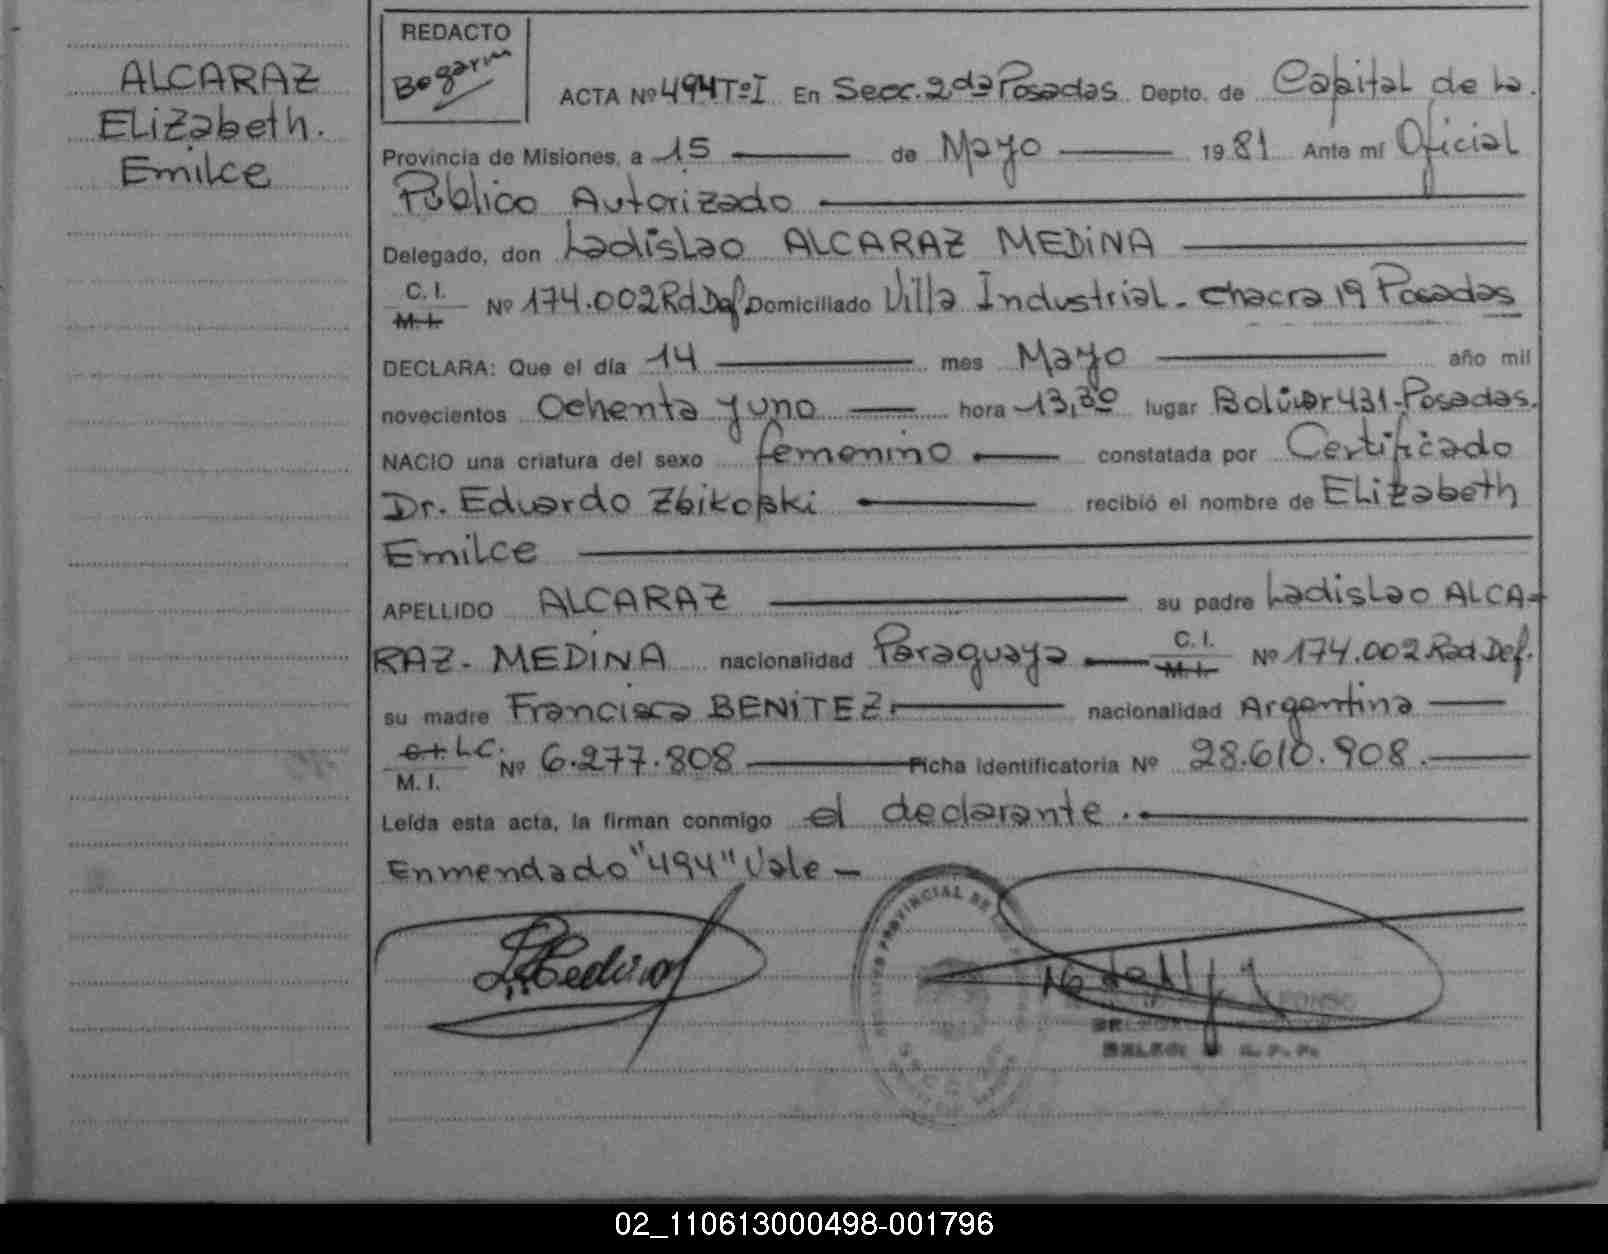 ALCARAZ
ELizabeth.
Emilce
REDACTO
Bogarin
ACTA Nº 494 Tº I En Secc. 2da Posadas Depto. de Capital de La
Provincia de Misiones, a 15 de Mayo 1981 Ante mí Oficial
Público Autorizado
Delegado, don Ladislao ALCARAZ MEDINA
C. I.
M. I. Nº 174.002 Rd Def Domiciliado Villa Industrial - chacra 19 Posadas
DECLARA: Que el día 14 mes Mayo año mil
novecientos Ochenta y uno hora 13,30 lugar Bolivar 431-Posadas.
NACIO una criatura del sexo femenino constatada por Certificado
Dr. Eduardo Zbikoski recibió el nombre de ELizabeth
Emilce
APELLIDO ALCARAZ su padre Ladislao ALCA-
RAZ - MEDINA nacionalidad Paraguaya C. I.
M. I. Nº 174.002 Rad Def.
su madre Francisca BENITEZ. nacionalidad Argentina
C. I. LC.
M. I. Nº 6.277.808 Ficha Identificatoria Nº 28.610.908.
Leída esta acta, la firman conmigo el declarante.
Enmendado "494" Vale -
PROVINCIAL DE
02_110613000498-001796